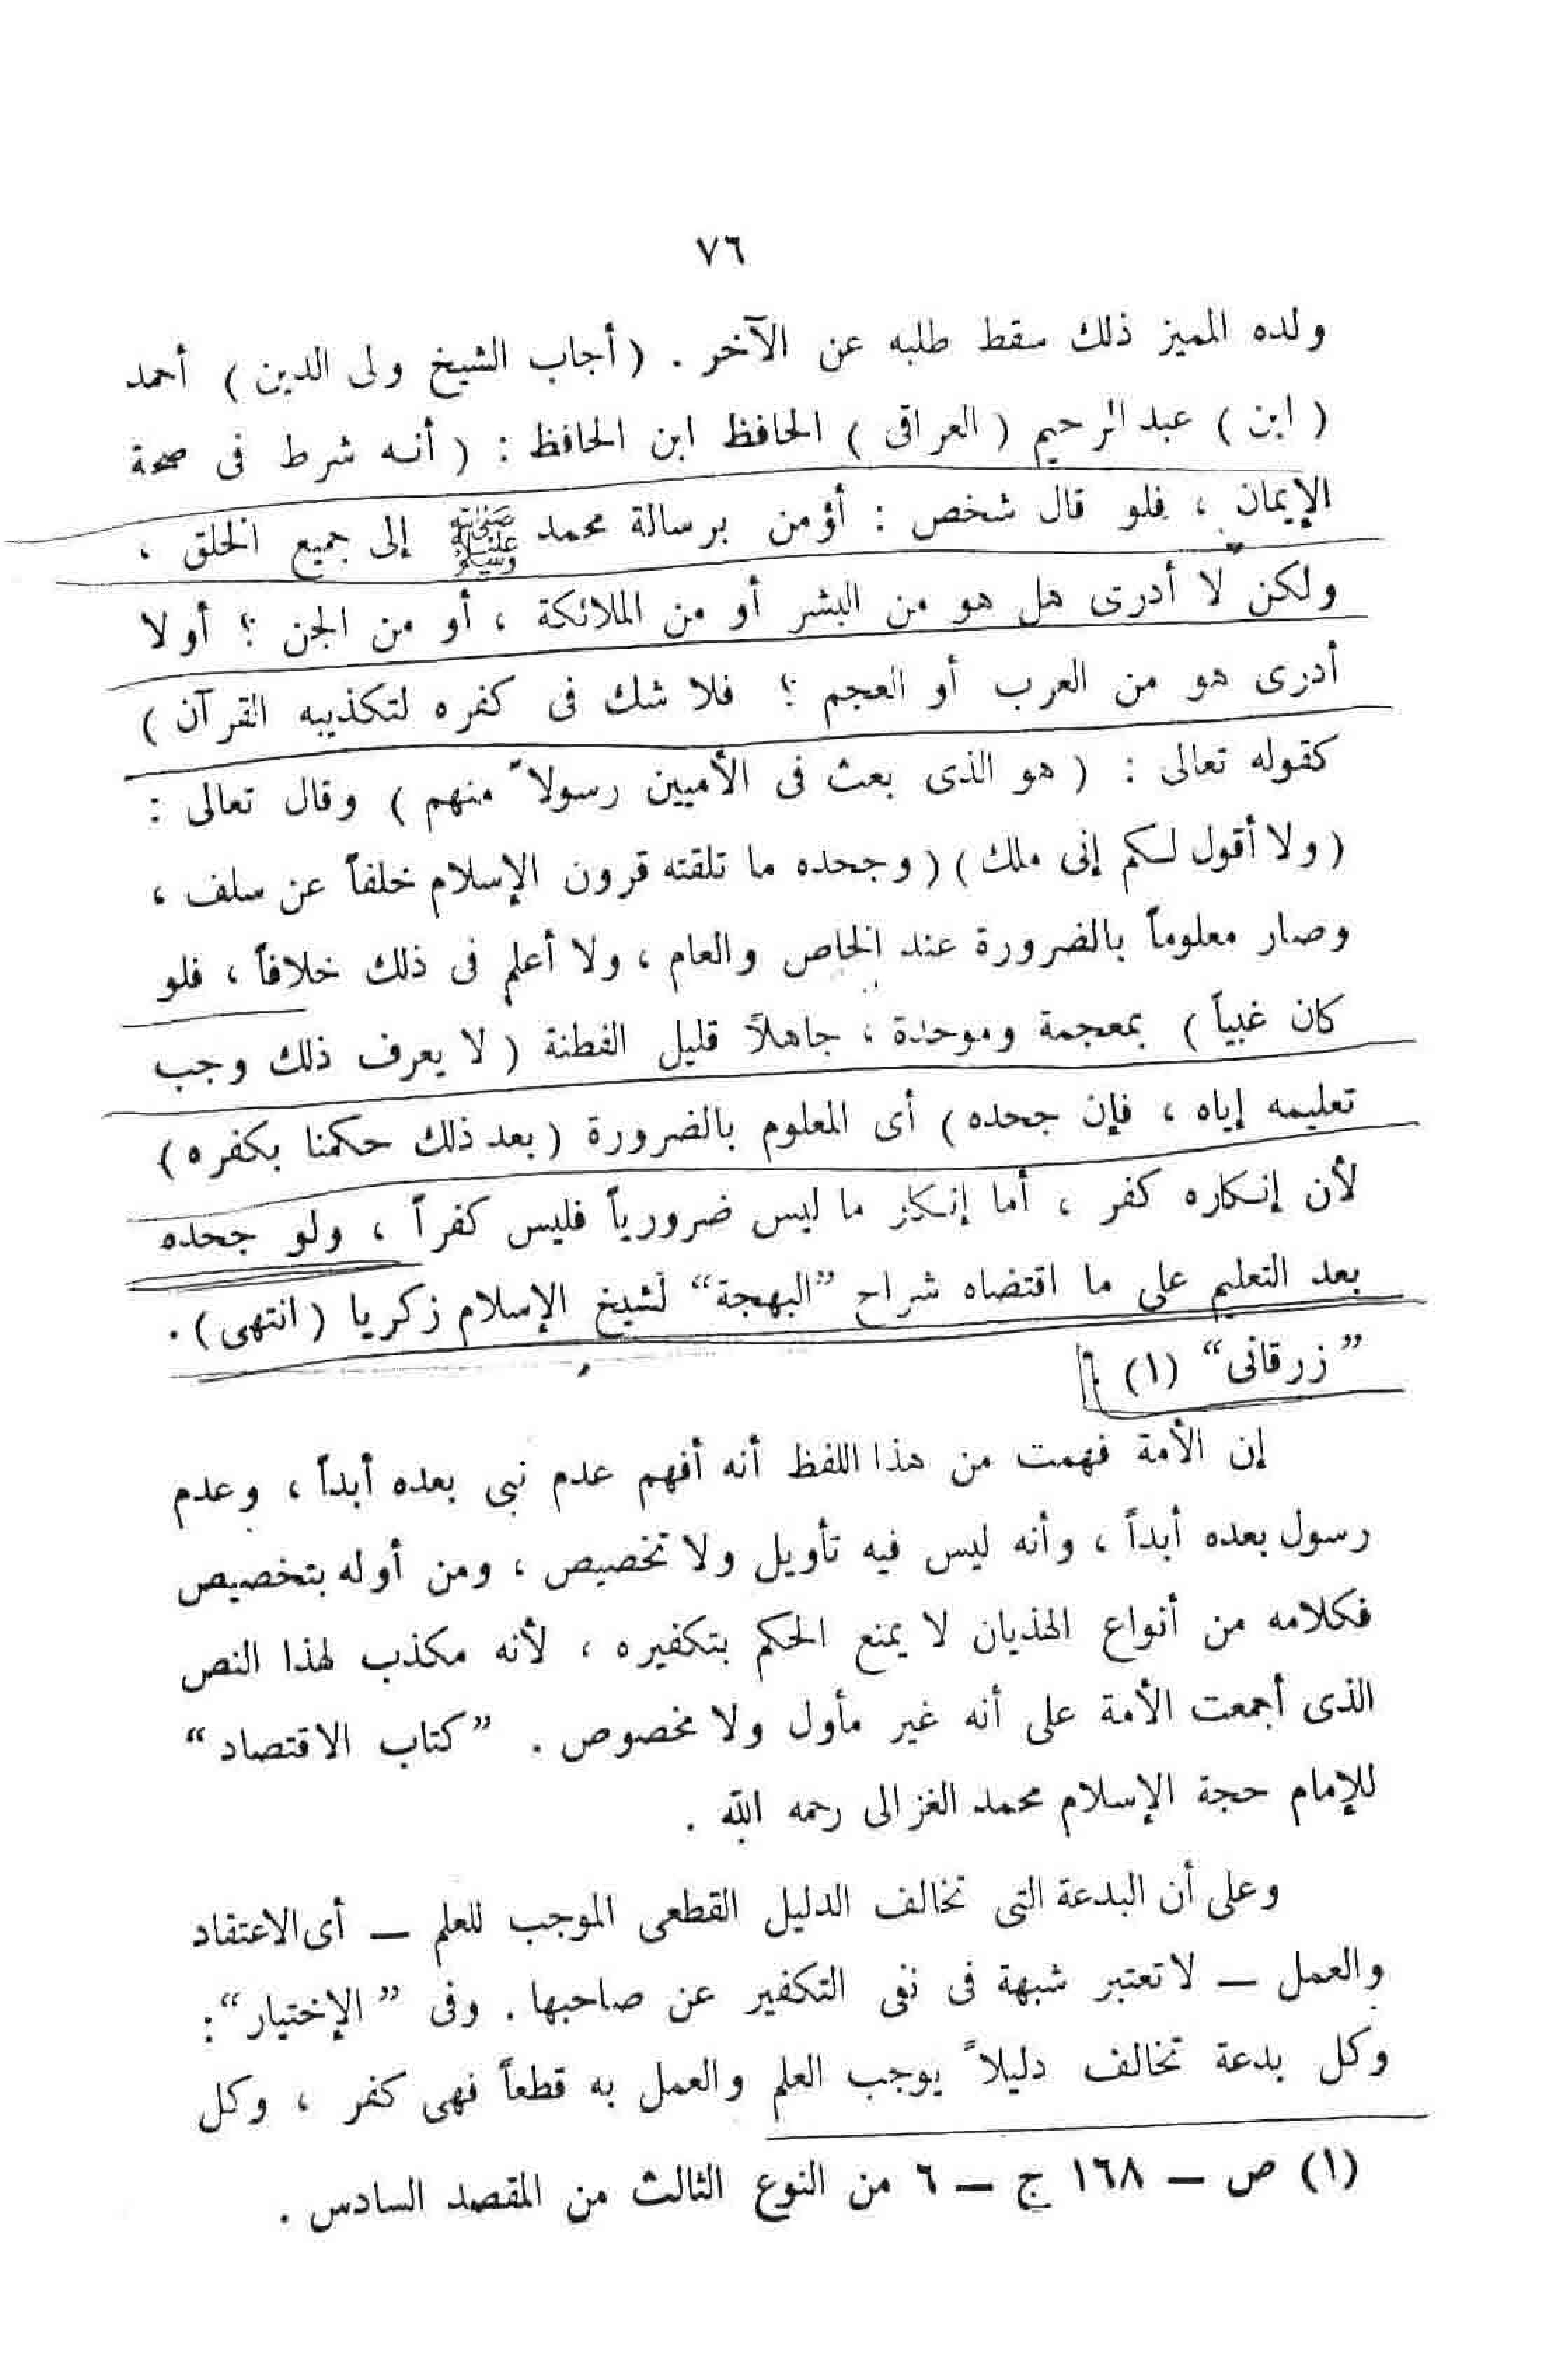 ٧٦
ولده المميز ذلك سقط طلبه عن الآخر . ( أجاب الشيخ ولى الدين ) أحمد
( ابن ) عبد الرحيم ( العراقى ) الحافظ ابن الحافظ : ( أنه شرط فى صحة
الإيمان ، فلو قال شخص : أؤمن برسالة محمد ﷺ إلى جميع الخلق ،
ولكن لا أدرى هل هو من البشر أو من الملائكة ، أو من الجن ؟ أو لا
أدرى هو من العرب أو العجم ؟ فلا شك فى كفره لتكذيبه القرآن )
كقوله تعالى : ( هو الذى بعث فى الأميين رسولاً منهم ) وقال تعالى :
( ولا أقول لكم إنى ملك ) ( وجحده ما تلقته قرون الإسلام خلفاً عن سلف ،
وصار معلوماً بالضرورة عند الخاص والعام ، ولا أعلم فى ذلك خلافاً ، فلو
كان غبياً ) بمعجمة وموحدة ، جاهلاً قليل الفطنة ( لا يعرف ذلك وجب
تعليمه إياه ، فإن جحده ) أى المعلوم بالضرورة ( بعد ذلك حكمنا بكفره )
لأن إنكاره كفر ، أما إنكار ما ليس ضرورياً فليس كفراً ، ولو جحده
بعد التعليم على ما اقتضاه شراح ”البهجة“ لشيخ الإسلام زكريا ( انتهى ) .
”زرقانى“ (١) .
إن الأمة فهمت من هذا اللفظ أنه أفهم عدم نبى بعده أبداً ، وعدم
رسول بعده أبداً ، وأنه ليس فيه تأويل ولا تخصيص ، ومن أوله بتخصيص
فكلامه من أنواع الهذيان لا يمنع الحكم بتكفيره ، لأنه مكذب لهذا النص
الذى أجمعت الأمة على أنه غير مأول ولا مخصوص . ”كتاب الاقتصاد“
للإمام حجة الإسلام محمد الغزالى رحمه الله .
وعلى أن البدعة التى تخالف الدليل القطعى الموجب للعلم — أى الاعتقاد
والعمل — لا تعتبر شبهة فى نفى التكفير عن صاحبها . وفى ”الإختيار“ :
وكل بدعة تخالف دليلاً يوجب العلم والعمل به قطعاً فهى كفر ، وكل
(١) ص — ١٦٨ ج — ٦ من النوع الثالث من المقصد السادس .